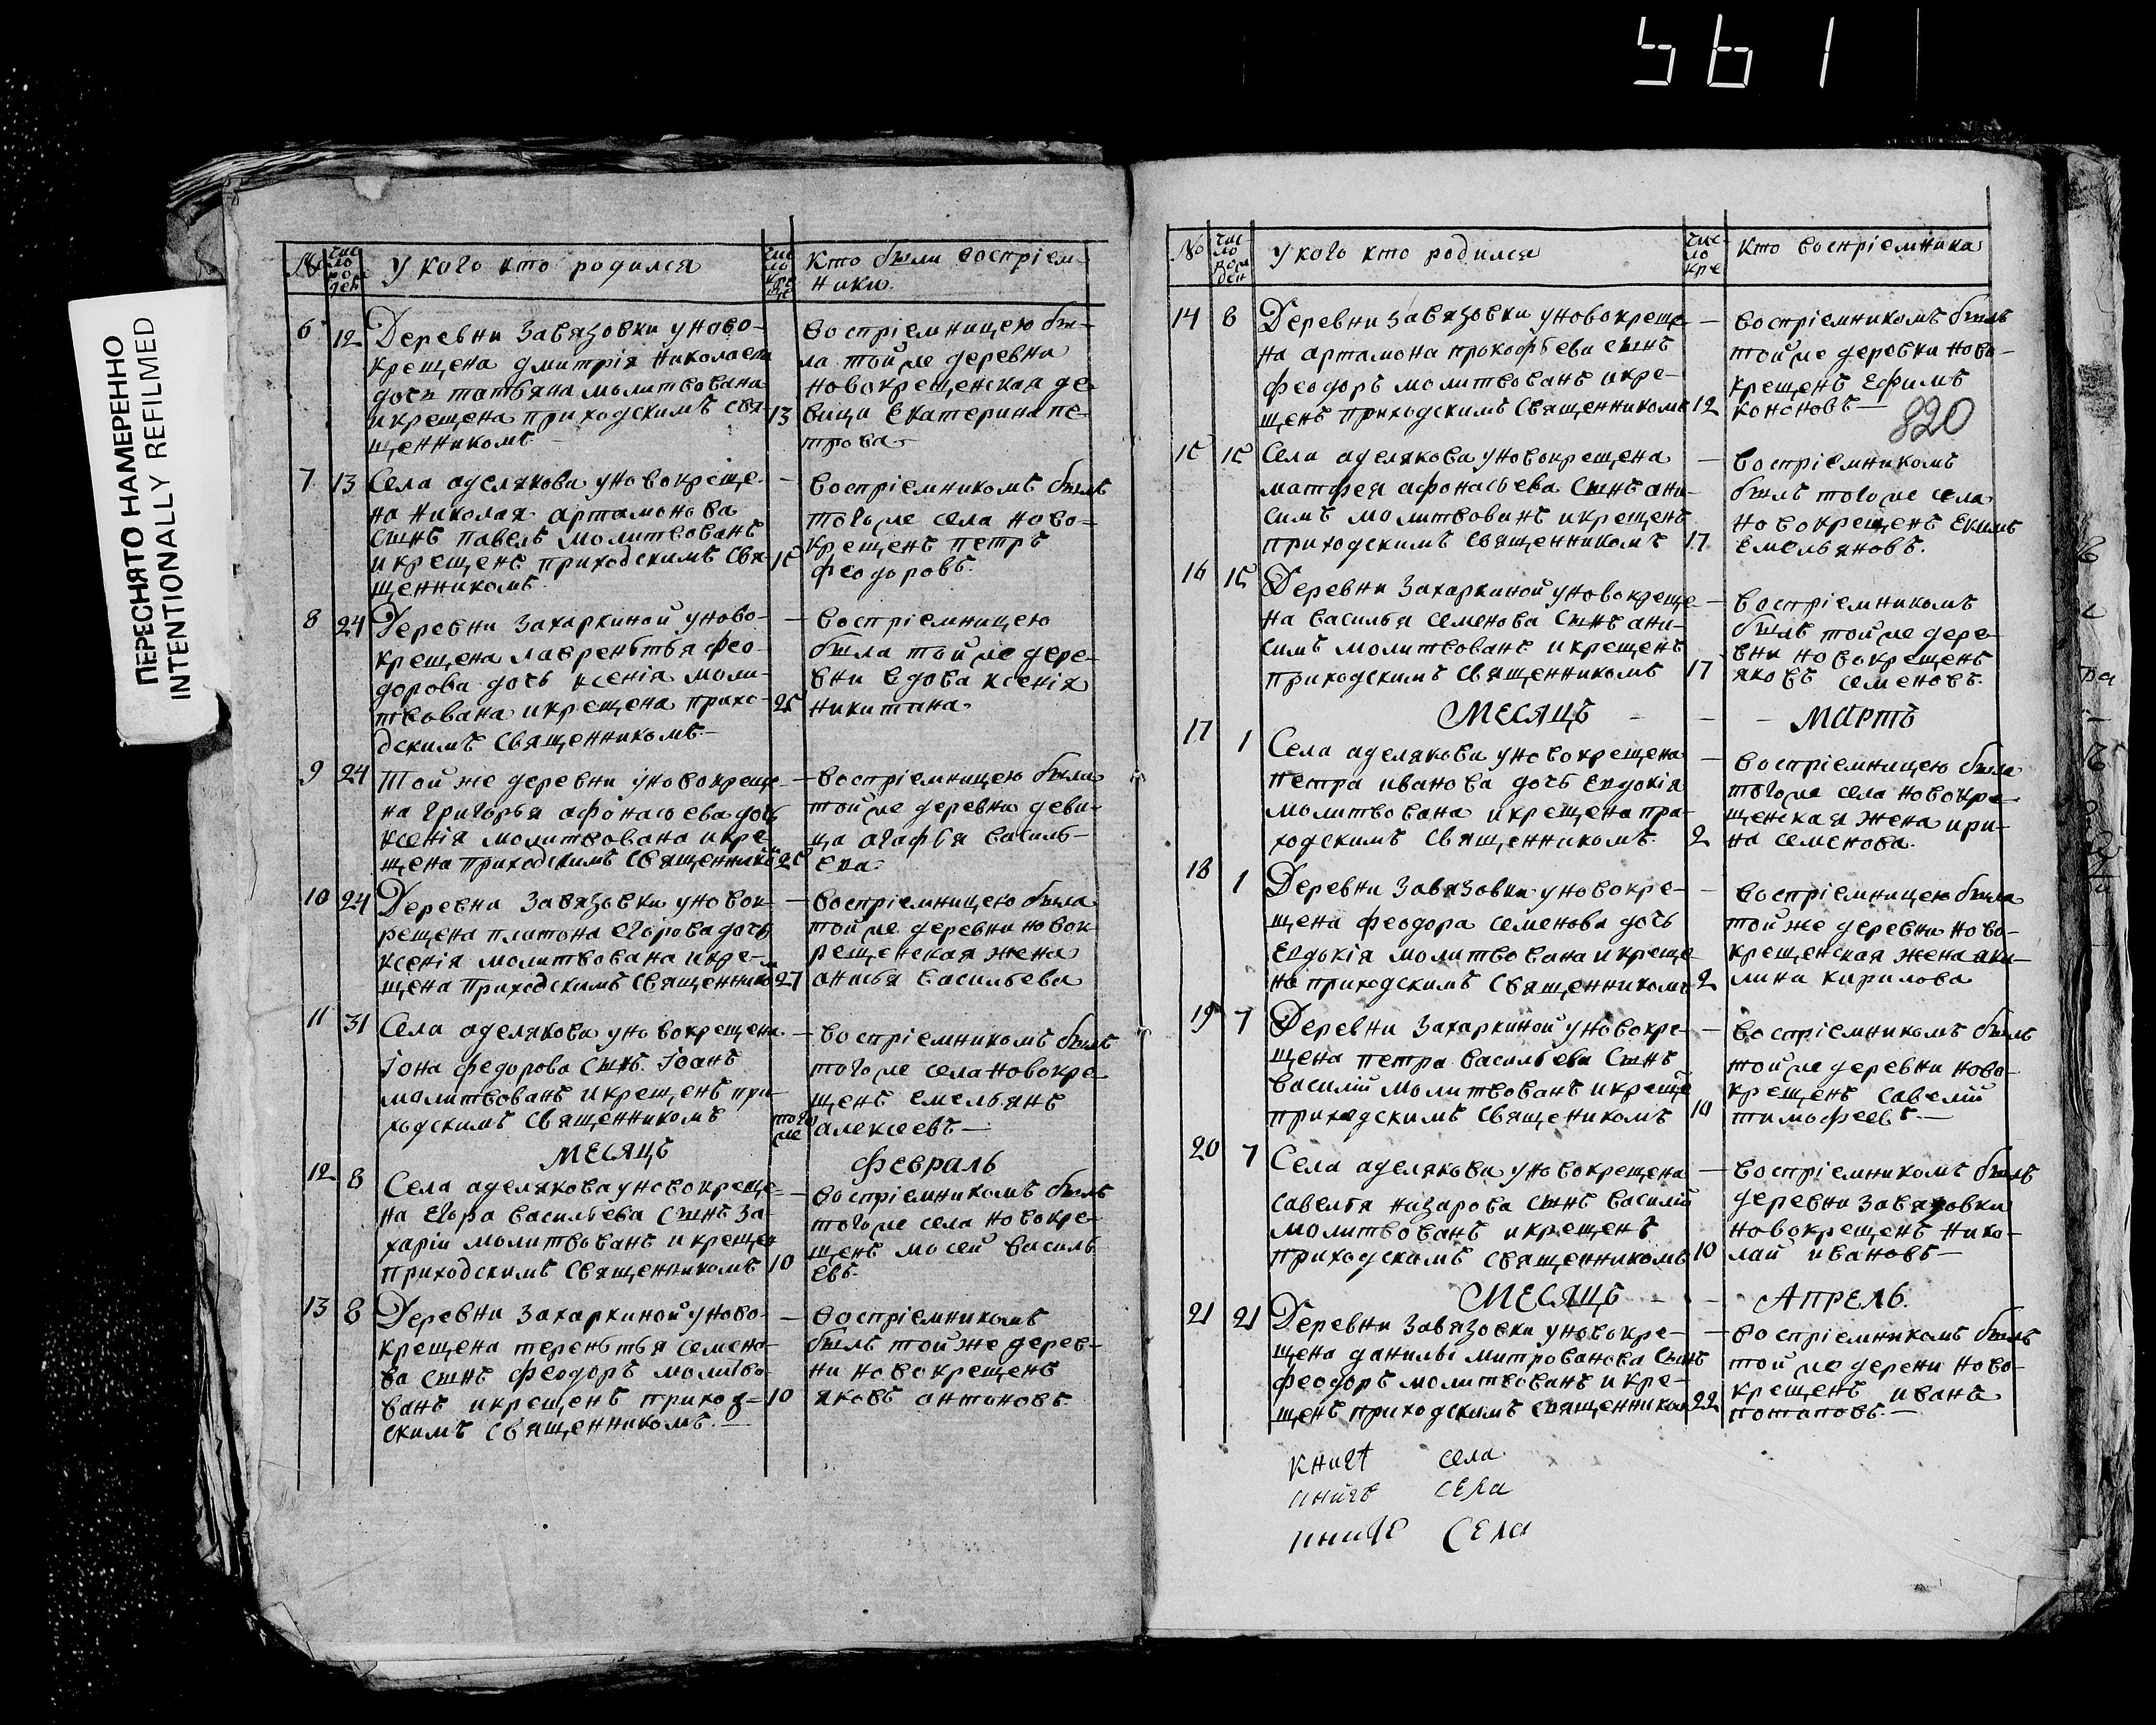 561
ПЕРЕСНЯТО НАМЕРЕННО
INTENTIONALLY REFILMED
№
чис
ло
рож
ден
У кого кто родился
чис
ло
кре
ще
Кто были восприем-
ники
6 12 Деревни Завязовки у ново-
крещена дмитрія николаева
дочь татьяна молитвована
и крещена приходскимъ свя-
щенникомъ
13
восприемницею бы-
ла той же деревни
новокрещенская де
вица екатерина пе-
трова
7 13 Села аделякова у новокреще-
на николая артамонова
сынъ павелъ молитвованъ
и крещенъ приходскимъ свя-
щенникомъ
15
воспріемникомъ былъ
того же села ново-
крещенъ петръ
феодоровъ.
8 24 Деревни захаркиной у ново-
крещена лаврентья фео-
дорова дочь ксенія моли-
твована и крещена прихо-
дскимъ священникомъ
25
воспріемницею
была той же дере-
вни вдова ксенія
никитина
9 24 той же деревни у новокреще-
на григорья афонасьева дочь
ксенія молитвована и кре-
щена приходскимъ священнико
25
воспріемницею была
той же деревни деви-
ца агафья василь-
ева
10 24 Деревни завязовки у новок-
рещена платона егорова дочь
ксенія молитвована и кре-
щена приходскимъ священнико
27
воспріемницею была
той же деревни новок
рещенская жена
анисья васильева
11 31 Села аделякова у новокрещена
іона федорова сынъ іоанъ
молитвованъ и крещенъ при-
ходскимъ священникомъ
того
же
воспріемникомъ былъ
того же села новокре-
щенъ емельянъ
алексеевъ
МЕСЯЦЪ февраль
12 8 Села аделякова у новокреще-
на егора васильева сынъ за-
харіи молитвованъ и крещен
приходскимъ священникомъ
10
воспріемникомъ былъ
того же села новокре-
щенъ мосей василь
евъ.
13 8 Деревни захаркиной у ново-
крещена терентья семено-
ва сынъ феодоръ молитво-
ванъ и крещенъ приход-
скимъ священникомъ.
10
воспріемникомъ
былъ той же дерев-
ни новокрещенъ
яковъ антоновъ.
№
чис
ло
рож
ден
У кого кто родился
чис
ло
кре
Кто воспріемника
14 8 Деревни завязовки у новокреще-
на артамона прокофьева сынъ
феодоръ молитвованъ и кре-
щенъ приходскимъ священникомъ
12
воспріемникомъ былъ
той же деревни ново-
крещенъ ефимъ
кононовъ
820
15 15 Села аделякова у новокрещена
матфея афонасьева сынъ ани-
симъ молитвованъ и крещенъ
приходскимъ священникомъ
17
воспріемникомъ
былъ того же села
новокрещенъ екимъ
емельяновъ.
16 15 Деревни захаркиной у новокреще-
на василья семенова сынъ ани-
симъ молитвованъ и крещенъ
приходскимъ священникомъ
17
воспріемникомъ
былъ той же дере-
вни новокрещенъ
яковъ семеновъ.
МЕСЯЦЪ МАРТЪ
17 1 Села аделякова у новокрещена
петра иванова дочь евдокія
молитвована и крещена при-
ходскимъ священникомъ.
2
воспріемницею была
того же села новокре-
щенская жена ири-
на семенова.
18 1 Деревни завязовки у новокре-
щена феодора семенова дочь
евдокія молитвована и креще
на приходскимъ священникомъ
2
воспріемницею была
той же деревни ново-
крещенская жена аки-
лина кирилова
19 7 Деревни захаркиной у новокре-
щена петра васильева сынъ
василій молитвованъ и креще
приходскимъ священикомъ
10
воспріемникомъ былъ
той же деревни ново-
крещенъ савелій
тимофеевъ.
20 7 Села аделякова у новокрещена
савелья назарова сынъ василій
молитвованъ и крещенъ
приходскимъ священникомъ
10
воспріемникомъ былъ
деревни завязовки
новокрещенъ нико-
лай ивановъ
МЕСЯЦЪ АПРЕЛЬ.
21 21 Деревни завязовки у новокре-
щена данилы митрованова сынъ
феодоръ молитвованъ и кре-
щенъ приходскимъ священником
22
воспріемникомъ былъ
той же дерени ново-
крещенъ иванъ
потаповъ.
книга села
книгъ села
книге села